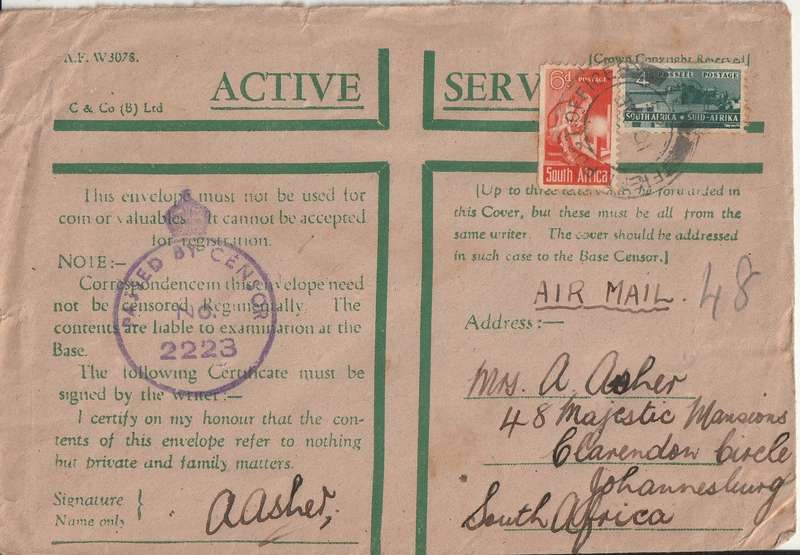 A.F. W3078.
[Crown Copyright Reserved]
ACTIVE SERV
C & Co (B) Ltd
6d POSTAGE
South Africa
POSTAGE
SOUTH AFRICA SUID-AFRIKA
This envelope must not be used for
coin or valuables. It cannot be accepted
for registration.
NOTE:—
Correspondence in this envelope need
not be censored Regimentally. The
contents are liable to examination at the
Base.
The following Certificate must be
signed by the writer:—
I certify on my honour that the con-
tents of this envelope refer to nothing
but private and family matters.
Signature
Name only
A Asher,
PASSED BY CENSOR
No.
2223
[Up to three letters may be forwarded in
this Cover, but these must be all from the
same writer. The cover should be addressed
in such case to the Base Censor.]
AIR MAIL. 48
Address:—
Mrs. A. Asher
48 Majestic Mansions
Clarendon Circle
Johannesburg
South Africa